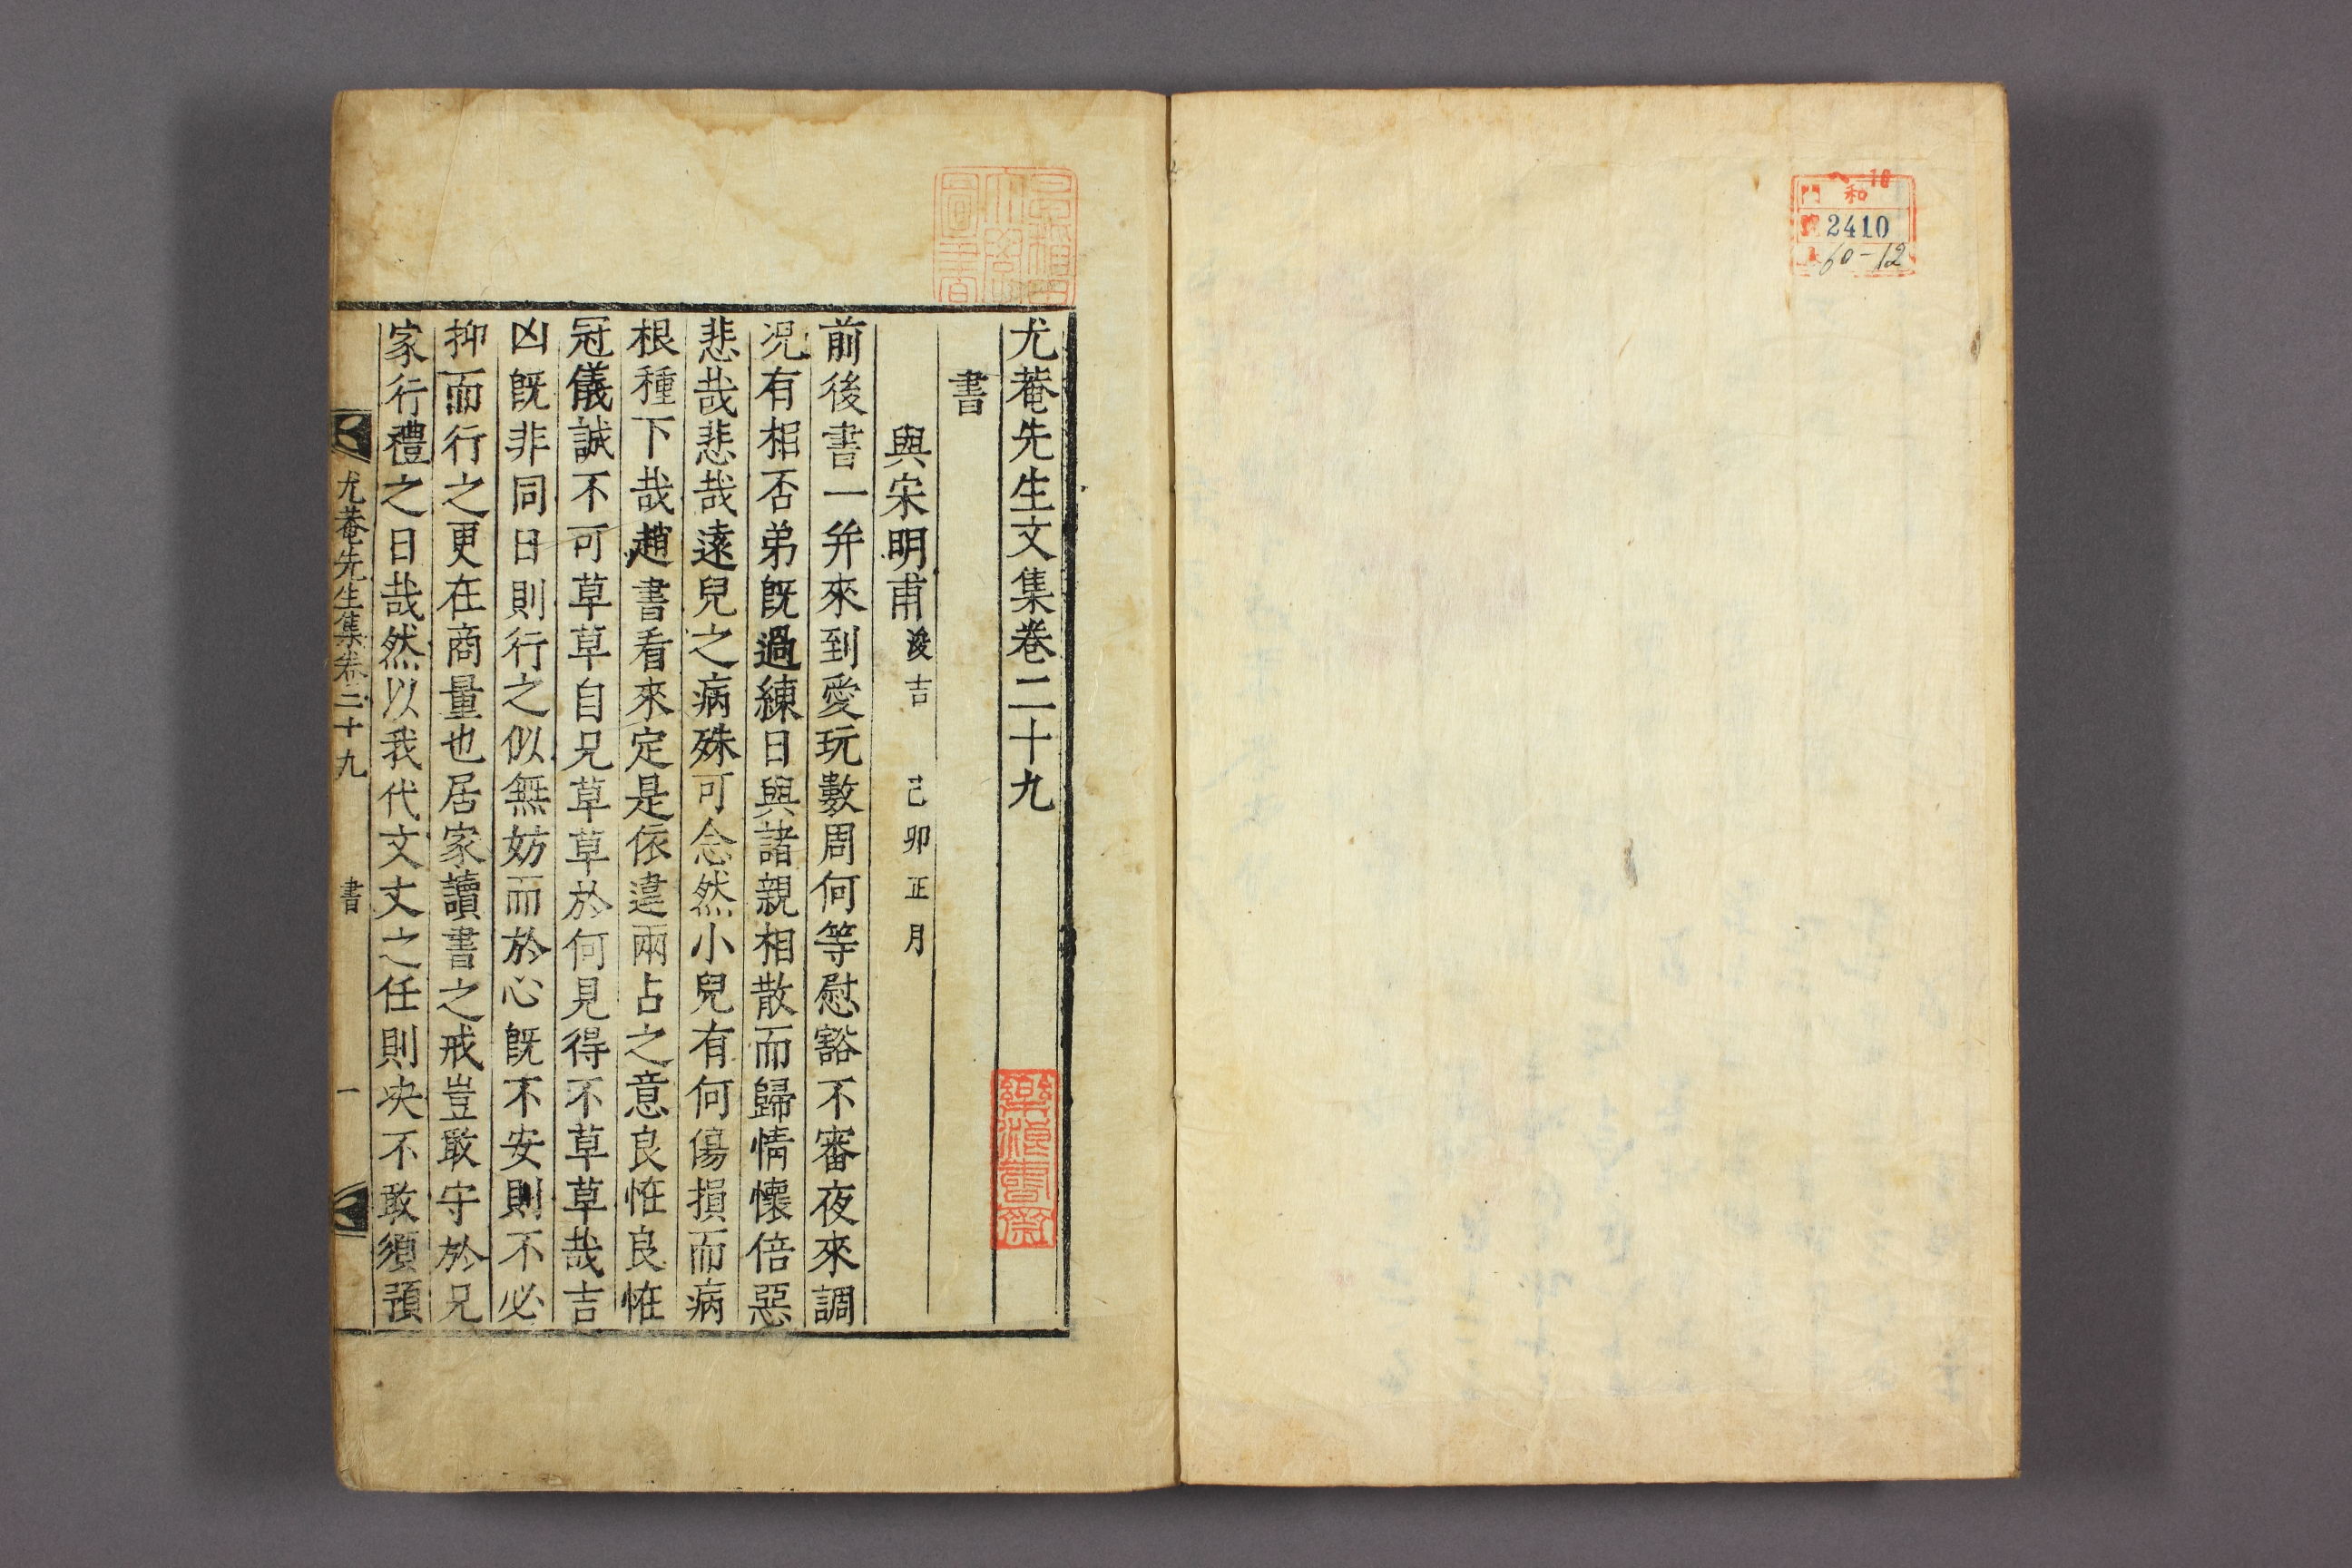 和
門
2410
60-12
尤菴先生文集卷二十九
書
與宋明甫浚吉 己卯正月
前後書一并來到愛玩數周何等慰豁不審夜來調
况有相否弟旣過練日與諸親相散而歸情懷倍惡
悲哉悲哉遠兒之病殊可念然小兒有何傷損而病
根種下哉趙書看來定是依違兩占之意良恠良恠
冠儀誠不可草草自兄草草於何見得不草草哉吉
凶旣非同日則行之似無妨而於心旣不安則不必
抑而行之更在商量也居家讀書之戒豈敢守於兄
家行禮之日哉然以我代文丈之任則决不敢須預
尤菴先生集卷二十九 書 一